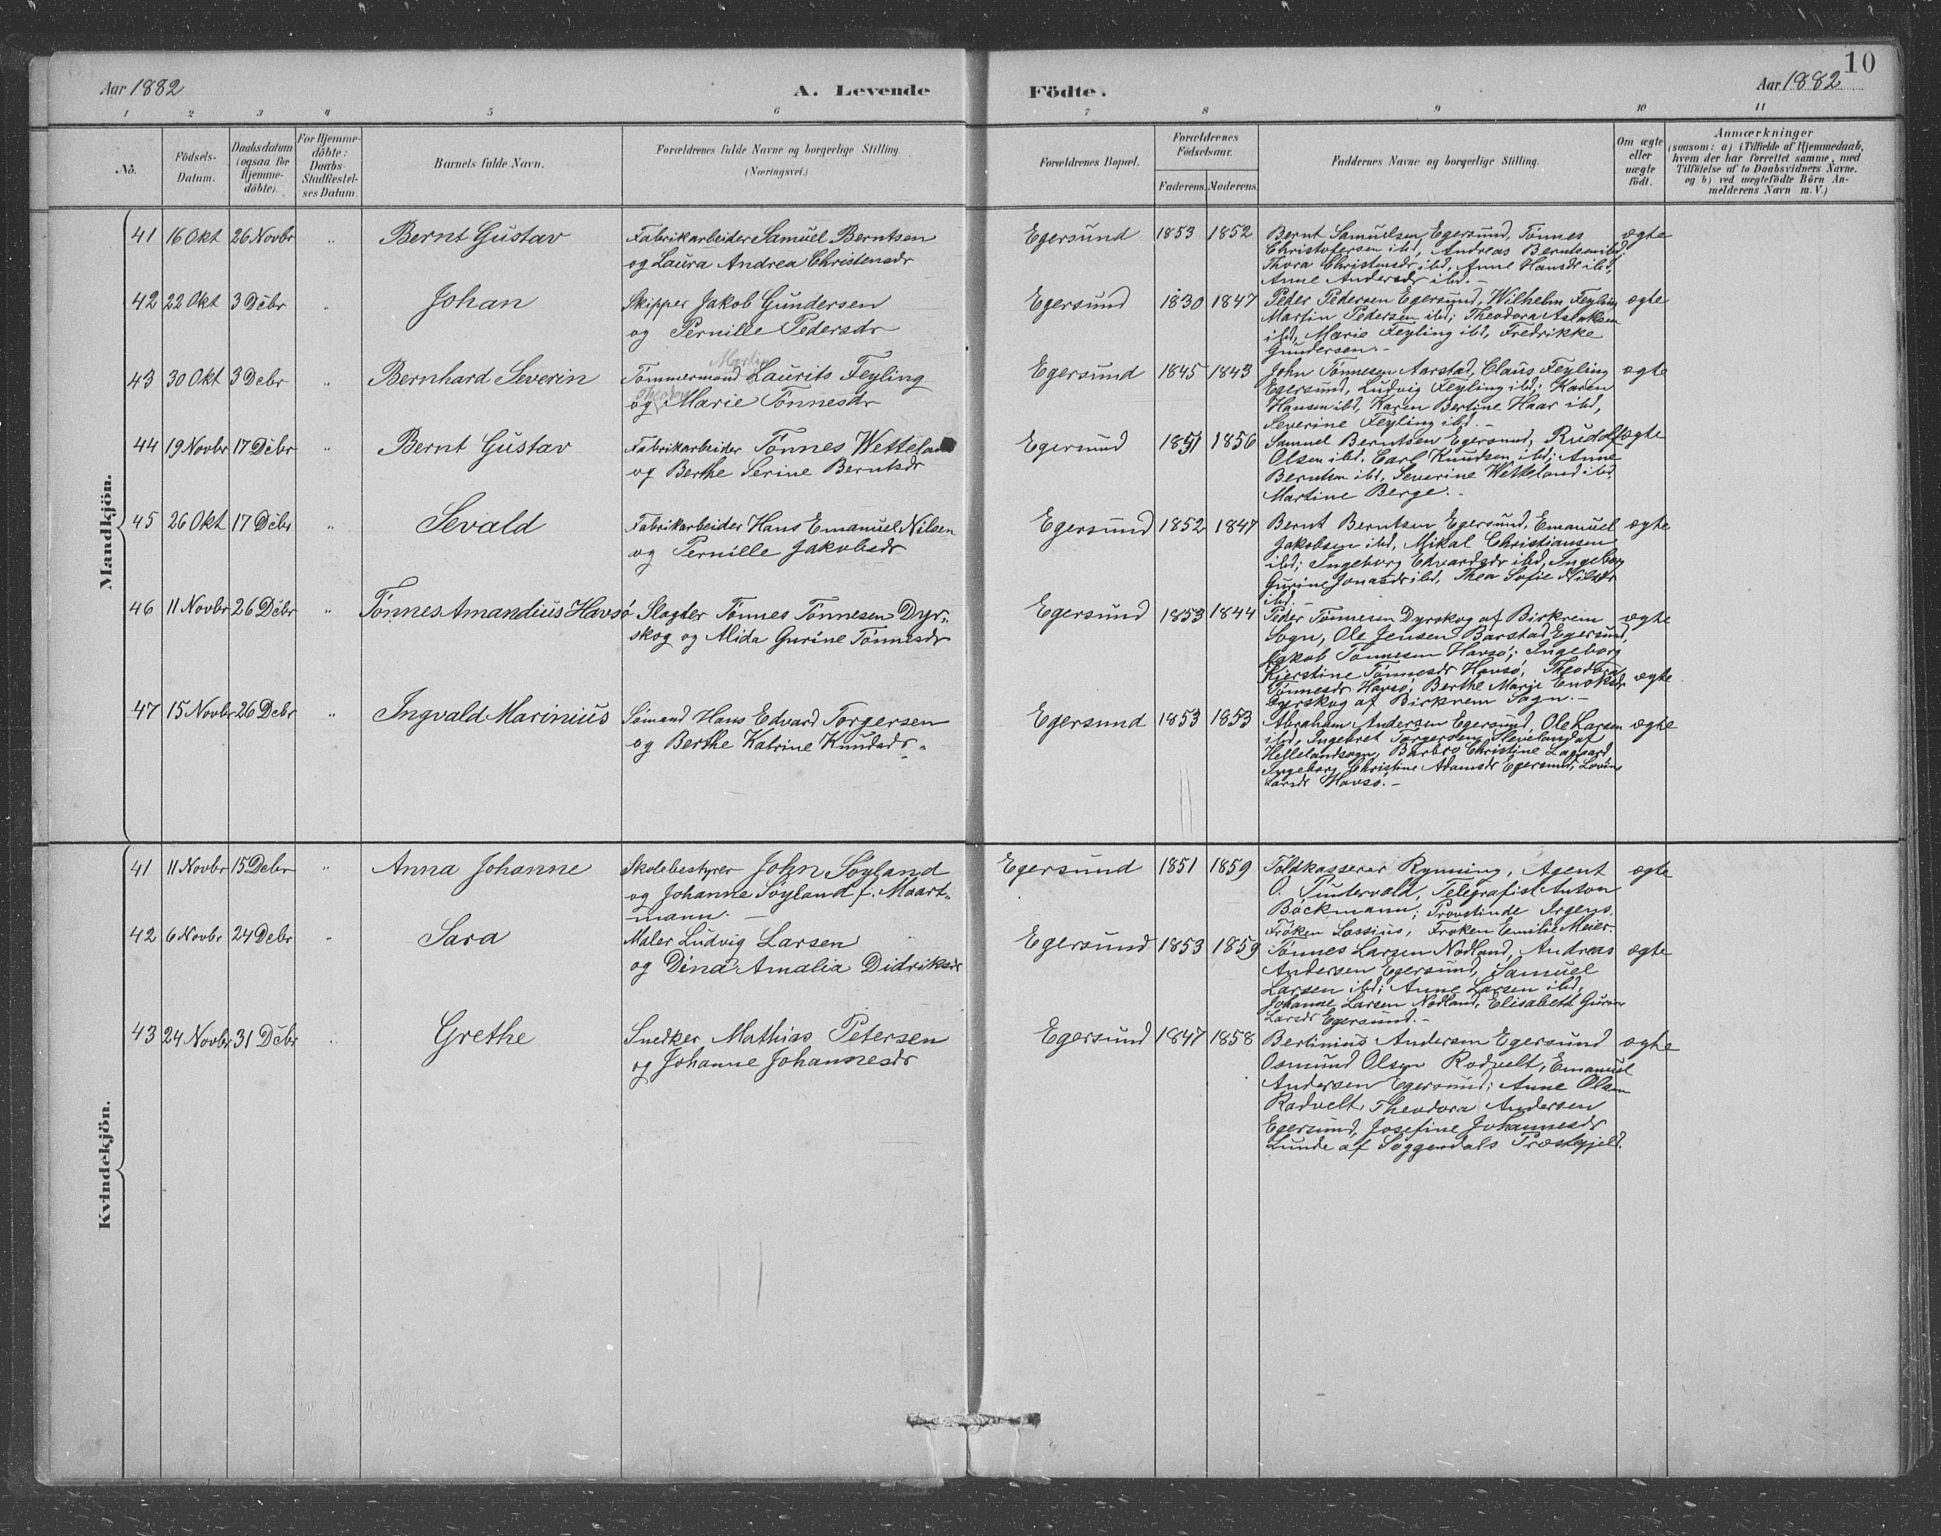 10
Aar 1882
A. Levende Födte.
Aar 1882
1 2 3 4 5 6 7 8 9 10 11
No.
Födsels-Datum.
Daabsdatum (ogsaa for Hjemme-döbte).
For Hjemme-döbte: Daabs-Stadfæstel-ses Datum.
Barnets fulde Navn.
Forældrenes fulde Navne og borgerlige Stilling.
(Næringsvei.)
Forældrenes Bopæl.
Forældrenes Födselsaar.
Faderens.
Moderens.
Faddernes Navne og borgerlige Stilling.
Om ægte eller uægte födt.
Anmærkninger
(saasom: a) i Tilfælde af Hjemmedaab,
hvem der har forrettet samme, med
Tilföielse af to Daabsvidners Navne.
og b) ved uægtefödte Börn An-
melderens Navn m. V.)
Mandkjön.
41 16 Okt 26 Novbr " Bernt Gustav Fabrikarbeider Samuel Berntsen Egersund 1853 1852 Bernt Samuelsen Egersund, Tønnes ægte
og Laura Andrea Christensdr Christofersen ibd, Andreas Berntsen ibd;
Thora Christensdr ibd, Anne Hansdr ibd,
Anne Andersdr ibd.-
42 22 Okt 3 Debr " Johan Skipper Jakob Gundersen Egersund 1830 1847 Peder Pedersen Egersund, Wilhelm Feyling ægte
og Pernille Pedersdr Martin Pedersen ibd; Theodora
ibd, Marie Feyling ibd, Fredrikke
Gundersen.-
Martin
43 30 Okt 3 Debr " Bernhard Severin Tømmermand Laurits Feyling Egersund 1845 1843 John Tønnesen Aarstad, Claus Feyling ægte
og Marie Tønnesdr Egersund, Ludvig Feyling ibd; Karen
Hansen ibd, Karen Bertine Haar ibd,
Severine Feyling ibd.-
44 19 Novbr 17 Debr " Bernt Gustav Fabrikarbeider Tønnes Wetteland Egersund 1851 1856 Samuel Berntsen Egersund, Rudolf ægte
og Berthe Serine Berntsdr Olsen ibd, Carl Knudsen ibd; Anne
Berntsen ibd, Severine Wetteland ibd,
Martine Berge.-
45 26 Okt 17 Debr " Sevald Fabrikarbeider Hans Emanuel Nilsen Egersund 1852 1847 Bernt Berntsen Egersund, Emanuel ægte
og Pernille Jakobsdr Jakobsen ibd, Mikal Christiansen
ibd; Ingeborg Edvardsdr ibd, Ingeborg
Gurine Jonasdr ibd, Thea Sofie Nilsdr
ibd.-
46 11 Novbr 26 Debr " Tønnes Amandius Havsø Slagter Tønnes Tønnesen Dyr- Egersund 1853 1844 Peder Tønnesen Dyrskog af Birkrem ægte
skog og Alida Gurine Tønnesdr Sogn, Ole Jensen Barstad Egersund,
Jakob Tønnesen Havsø; Ingeborg
Kjerstine Tønnesdr Havsø, Theodora
Tønnesdr Havsø, Berthe Marie Enoksdr ægte
Dyrskog af Birkrem Sogn.-
47 15 Novbr 26 Debr " Ingvald Marinius Sømand Hans Edvard Torgersen Egersund 1853 1853 Abraham Andersen Egersund, Ole Larsen ægte
og Berthe Katrine Knudsdr.- ibd, Ingebret Torgersen Sleveland af
Hellelandsogn, Barbro Christine Lagaard,
Ingeborg Christine Adamsdr Egersund,
Larsdr Havsø.-
Kvindekjön.
41 11 Novbr 15 Debr " Anna Johanne Skolebestyrer John Søyland Egersund 1851 1859 Toldkasserer Rynning, Agent ægte
og Johanne Søyland f. Maart- O. Puntervald, Telegrafist Anton
mann.- Bøckmann; Provstinde Irgens,
Frøken Sassius, Frøken Emilie Meier.
42 6 Novbr 24 Debr " Sara Maler Ludvig Larsen Egersund 1853 1859 Tønnes Larsen Nodland, Andreas ægte
og Dina Amalia Didriksdr Andersen Egersund, Samuel
Larsen ibd; Anne Larsen ibd,
Johanne Larsen Nodland, Elisabeth Gurine
Larsdr Egersund.-
43 24 Novbr 31 Debr " Grethe Snedker Mathias Petersen Egersund 1847 1858 Bertinius Andersen Egersund ægte
og Johanne Johannesdr Osmund Olsen Rodvelt, Emanuel
Andersen Egersund; Anne Olsen
Rodvelt, Theodora Andersen
Egersund, Josefine Johannesdr
Lunde af Soggendals Præstegjeld.